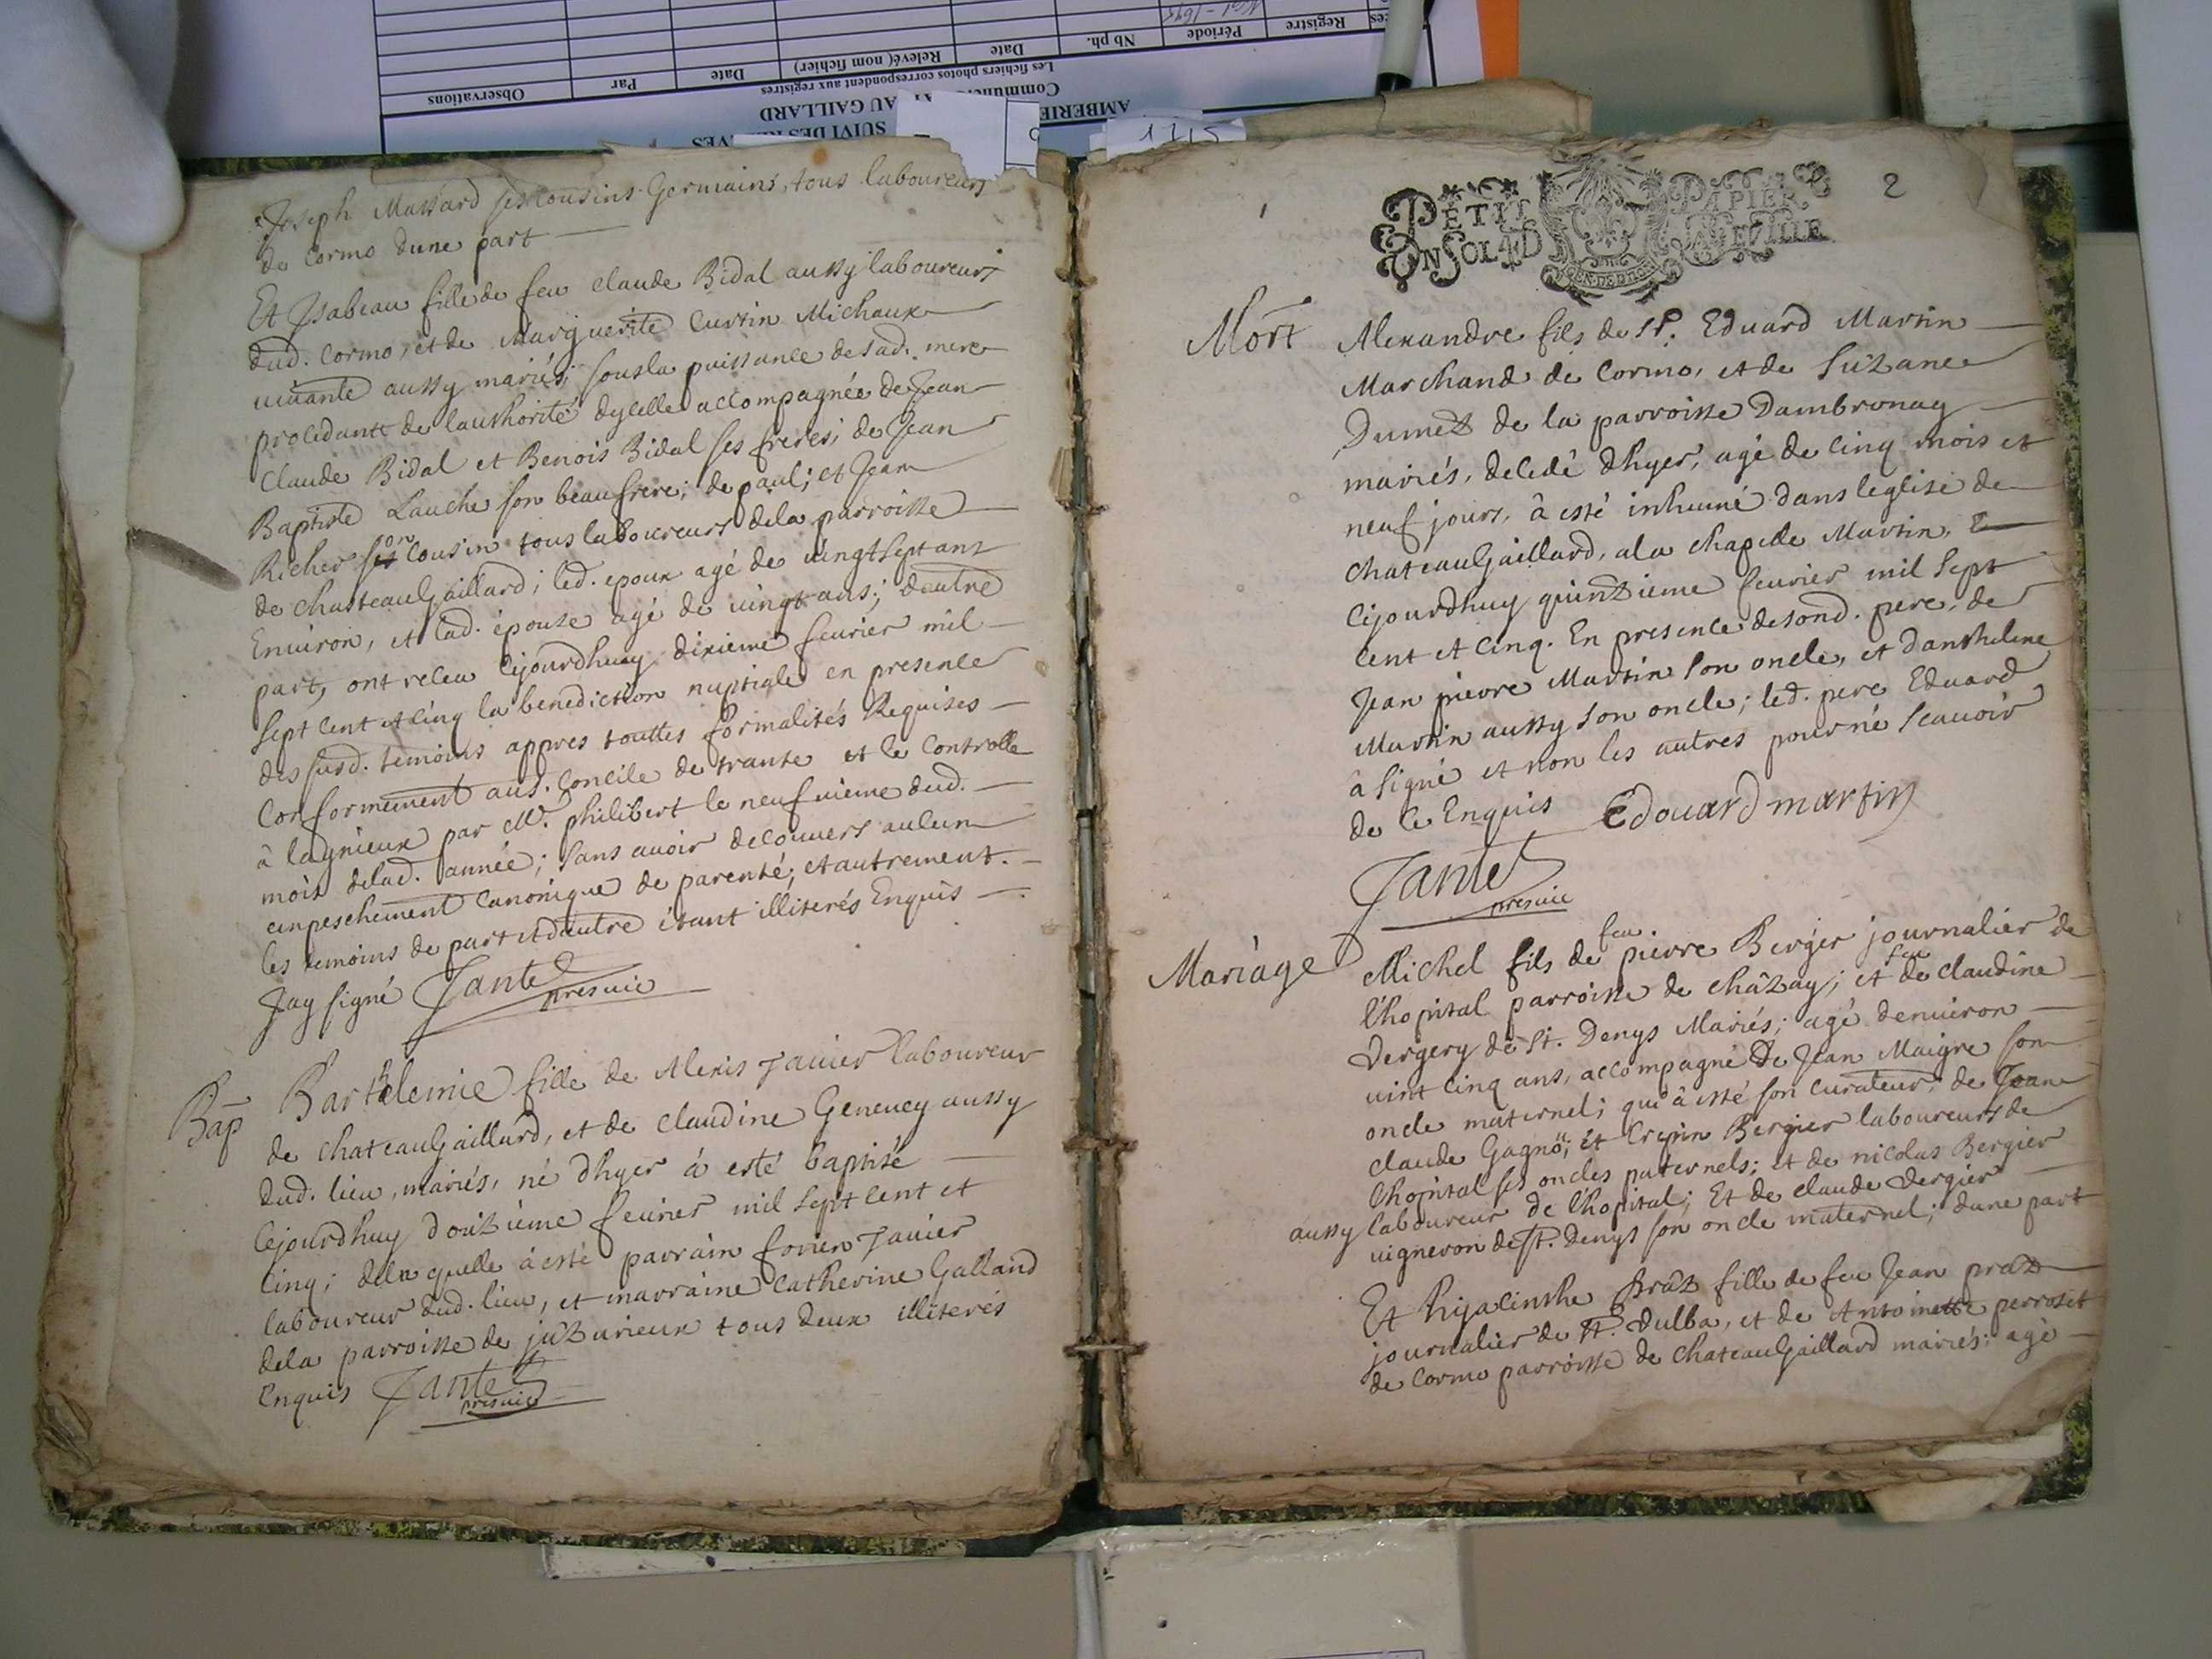 Observations
Par
Date
Relevé (nom fichier)
Date
Nb ph.
Période
Registre
Les fichiers photos correspondent aux registres
AU GAILLARD
AMBERIE
SUIVI DES
1715
Joseph Massard ses cousins Germains, tous laboureurs
de Cormo dune part
Et Jsabeau fille de feu claude Bidal aussy laboureurs
dud. Cormo, et de Marguerite Curtin Michaux
uiuante aussy mariés; sous la puissance de sad. mere
procedante de lauthorité dycelle accompagnée de Jean
Claude Bidal et Benois Bidal ses freres; de Jean
Baptiste Lauche son beaufrere; de paul; et Jean
Richer son cousin tous laboureurs dela parroisse
de ChasteauGaillard; led. epoux agé de uingtsept ans
Enuiron, et lad. épouse agé de uingt ans; dautre
part, ont receu cejourdhuy dixieme feurier mil
sept cent et cinq la benediction nuptiale en presence
des susd. temoins appres touttes formalités Requises
Conformement aus. Concile de trante et le Controlle
à lagnieux par Mr. philibert le neufuieme dud.
mois delad. année; sans auoir decouuers aulcun
empeschement canonique de parenté; et autrement.
les temoins de part et dautre étant illiterés Enquis
Jay signé Jantet
presuic
Bap
Barthelemie fille de Alexis Jauier laboureur
de chateauGaillard, et de claudine Geneuey aussy
dud. lieu, mariés, né dhyer à esté baptisé
cejourdhuy douzieme feurier mil sept cent et
cinq; dela quelle à esté parrain Jauier
laboureur dud. lieu, et marraine Catherine Galland
dela parroisse de juzurieux tous deux illiterés
Enquis Jantet
presuic
PETIT PAPIER
UN SOL 4 D LA FEUILLE
2
Mort
Alexandre fils de Sr. Eduard Martin
Marchand de Cormo, et de Suzane
Dumez de la parroisse Dambronay
mariés, decedé dhyer, agé de cinq mois et
neuf jours, à esté inhumé dans leglise de
chateauGaillard, a la chapelle Martin,
cejourdhuy quinzieme feurier mil sept
cent et cinq. En presence de sond. pere, de
Jean pierre Martin son oncle, et danthelme
Martin aussy son oncle; led. pere Eduard
à signé et non les autres pour ne scauoir
de ce Enquis Edouard martin
Jantet
presuic
Mariage
Michel fils de feu pierre Berger journalier de
lhopital parroisse de châzay; et de feu claudine
Dergery de St. Denys Mariés; agé denuiron
uint cinq ans, accompagné de Jean Maigre son
oncle maternel; qui à esté son curateur; de Jean
claude Gagno; et Crepin Bergier laboureurs de
lhopital ses oncles paternels; et de nicolas Bergier
aussy laboureur de lhopital; Et de claude Dergier
uigneron de St. Denys son oncle maternel; dune part
Et hyacinthe Praz fille de feu Jean praz
journalier de St. Dulba, et de Antoinette perroset
de Cormo parroisse de chateauGaillard mariés; agé